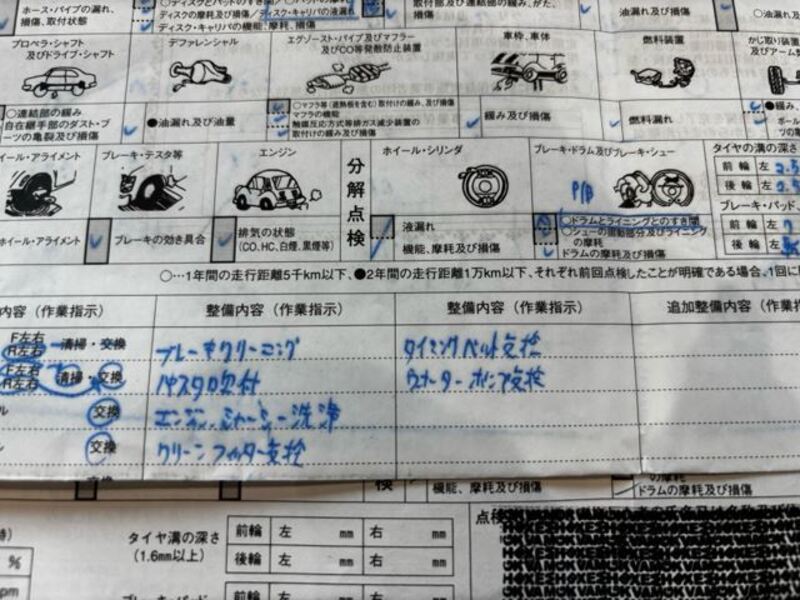 ホース・パイプの漏れ、
損傷、取付状態
ディスクの摩耗及び損傷/ディスク・キャリパの液漏れ
ディスク・キャリパの機能、摩耗、損傷
取付部及び連結部の緩み、がた、
損傷
油漏れ及び損傷
プロペラ・シャフト
及びドライブ・シャフト
デファレンシャル
エグゾースト・パイプ及びマフラー
及びCO等発散防止装置
車枠、車体
燃料装置
かじ取り装置
及びアーム
○連結部の緩み
自在継手部のダスト・ブ
ーツの亀裂及び損傷
●油漏れ及び油量
○マフラ等(遮熱板を含む)取付けの緩み、及び損傷
マフラの機能
触媒反応方式等排ガス減少装置の
取付けの緩み及び損傷
緩み及び損傷
燃料漏れ
●緩み、
ボール
イール・アライメント
ブレーキ・テスタ等
エンジン
分解点検
ホイール・シリンダ
ブレーキ・ドラム及びブレーキ・シュー
P/B
タイヤの溝の深さ
前輪 左 2.5
後輪 左 2.5
ブレーキ・パッド、
前輪 左 7
後輪 左
ホイール・アライメント
ブレーキの効き具合
排気の状態
(CO、HC、白煙、黒煙等)
液漏れ
機能、摩耗及び損傷
○ドラムとライニングとのすき間
○シューの摺動部分及びライニング
の摩耗
ドラムの摩耗及び損傷
○…1年間の走行距離5千km以下、●2年間の走行距離1万km以下、それぞれ前回点検したことが明確である場合、1回に
内容(作業指示)
整備内容(作業指示)
整備内容(作業指示)
追加整備内容(作業
F左右
R左右
清掃・交換
ブレーキクリーニング
タイミングベルト交換
F左右
R左右
清掃・交換
パスタロ吹付
ウォーターポンプ交換
ル
交換
エンジン、シャーシー洗浄
交換
クリーンフィルター交換
交換
検
機能、摩耗及び損傷
の摩耗
ドラムの摩耗及び損傷
タイヤ溝の深さ
(1.6mm以上)
前輪 左 mm 右 mm
後輪 左 mm 右 mm
%
ppm
ブレーキ・パッド
前輪 左 mm 右 mm